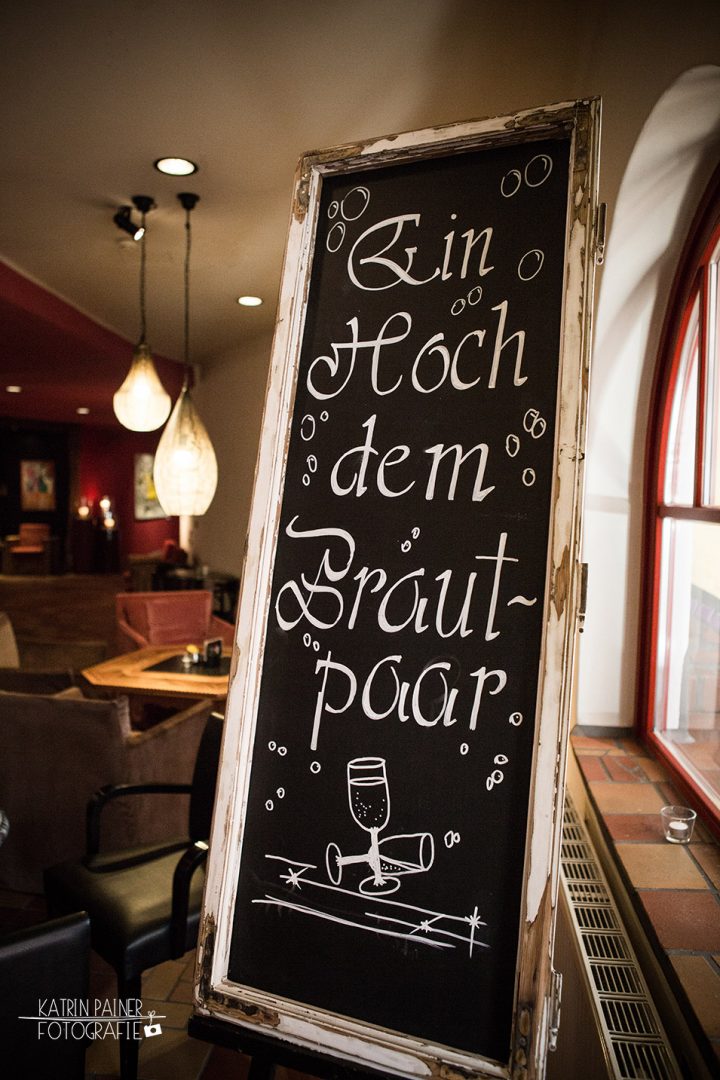 Ein
Hoch
dem
Braut-
paar
KATRIN PAINER
FOTOGRAFIE